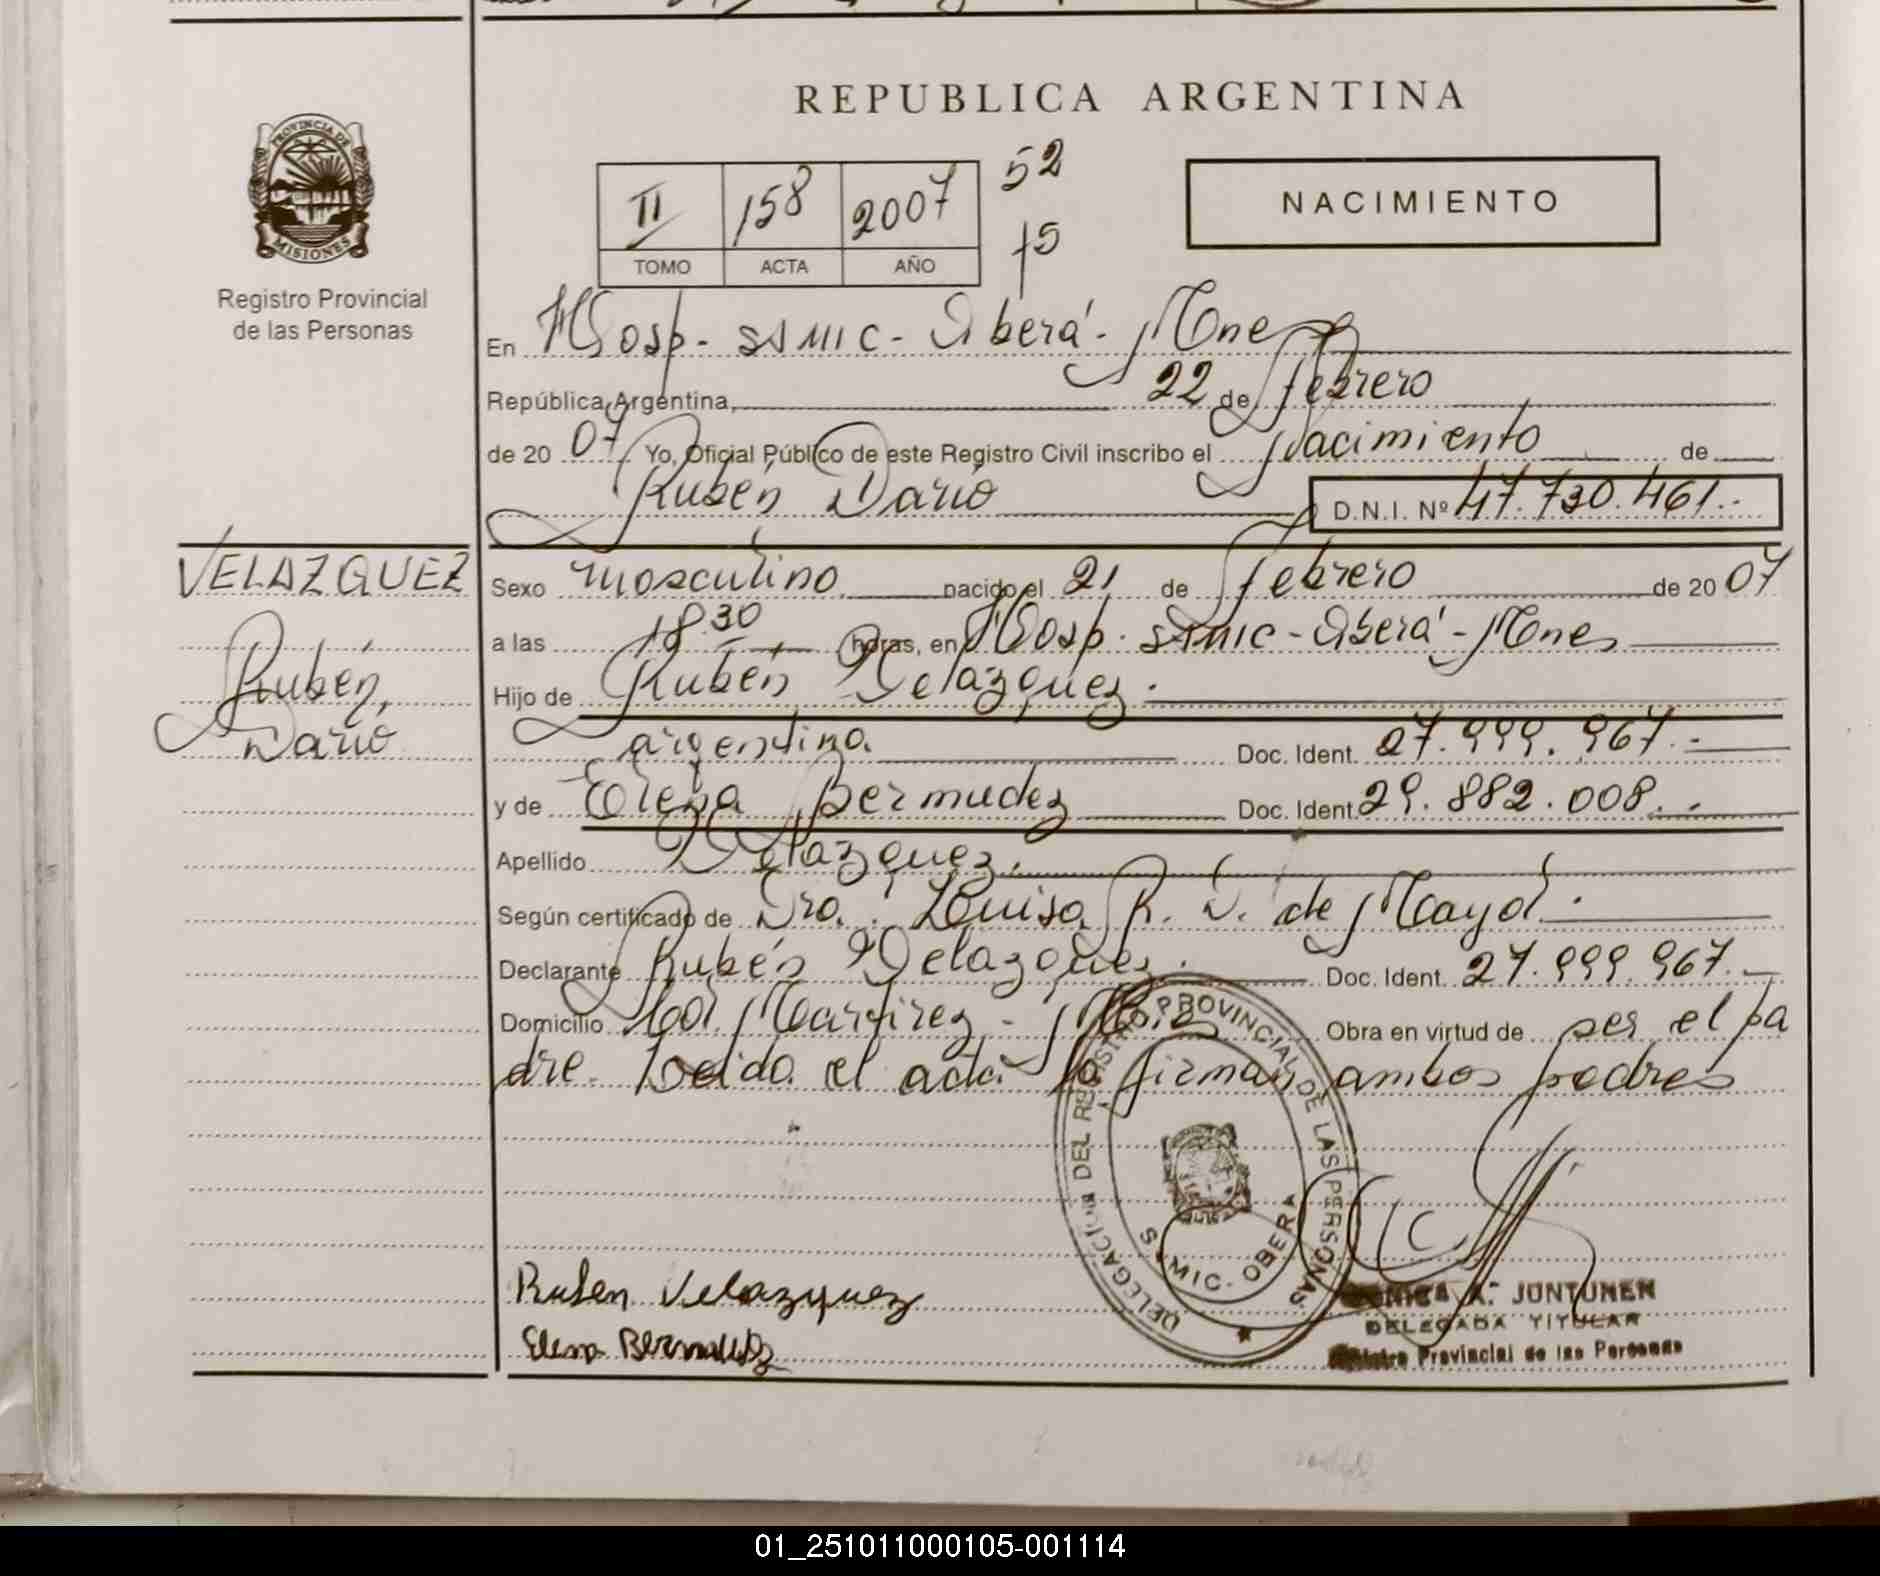 REPUBLICA ARGENTINA
PROVINCIA DE
MISIONES
Registro Provincial
de las Personas
II 158 2007 52
TOMO ACTA AÑO 15
NACIMIENTO
En Hosp. SAMIC - Oberá - Mnes
República Argentina, 22 de febrero
de 20 07 Yo, Oficial Público de este Registro Civil inscribo el Nacimiento de
Rubén Darío D.N.I. Nº 47.730.461.-
VELAZQUEZ
Rubén,
Darío
Sexo masculino nacido el 21 de febrero de 20 07
a las 18.30 horas, en Hosp. SAMIC - Oberá - Mnes
Hijo de Rubén Velazquez.
argentina Doc. Ident. 27.999.967.-
y de Elena Bermudez Doc. Ident. 29.882.008.-
Apellido Velazquez.
Según certificado de Dra. Luisa R. D. de Mayol.
Declarante Rubén Velazquez. Doc. Ident. 27.999.967.-
Domicilio Col. Martires - Obra en virtud de ser el pa
dre. Leida el acta la firman ambos padres
DELEGACION DEL REGISTRO PROVINCIAL DE LAS PERSONAS
SAMIC - OBERA
Ruben Velazquez
Elena Bermudez
A. JUNTUNEN
DELEGADA TITULAR
Registro Provincial de las Personas
01_251011000105-001114